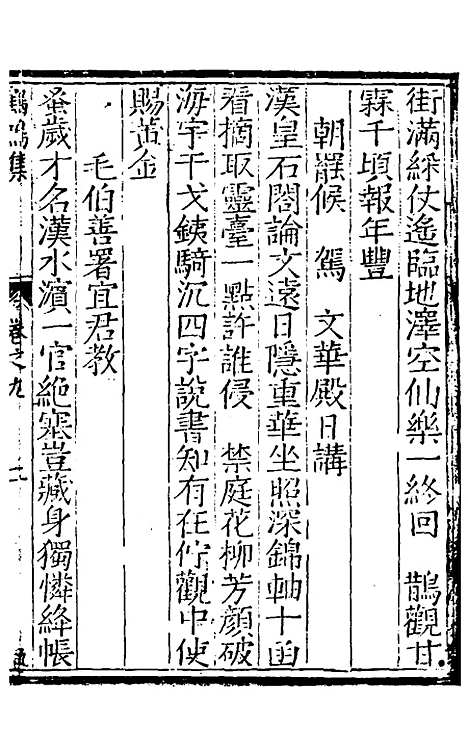 街滿綵仗遙臨地澤空仙樂一終回　鵲觀甘
霖千頃報年豐
朝罷候　駕　文華殿日講
漢皇石閣論文遠日隱重華坐照深錦軸十函
看摘取靈臺一點許誰侵　禁庭花柳芳顏破
海宇干戈銕騎沉四字說書知有在佇觀中使
賜黃金
毛伯善署宜君教
蚤歲才名漢水濵一官絶塞豈藏身獨憐絳帳
鳴集
卷之九